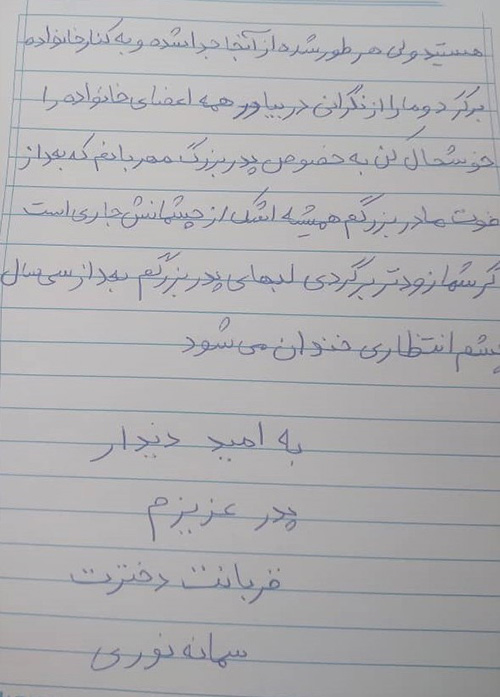 هستید ولی هر طور شده از آنجا جدا شده و به کنار خانواده
برگرد و ما را از نگرانی در بیاور همه اعضای خانواده را
خوشحال کن به خصوص پدر بزرگ مهربانم که بعد از
فوت مادر بزرگم همیشه اشک از چشمانش جاری است
گر شما زودتر برگردی لبهای پدر بزرگم بعد از سی سال
چشم انتظاری خندان می شود
به امید دیدار
پدر عزیزم
قربانت دخترت
سمانه نوری